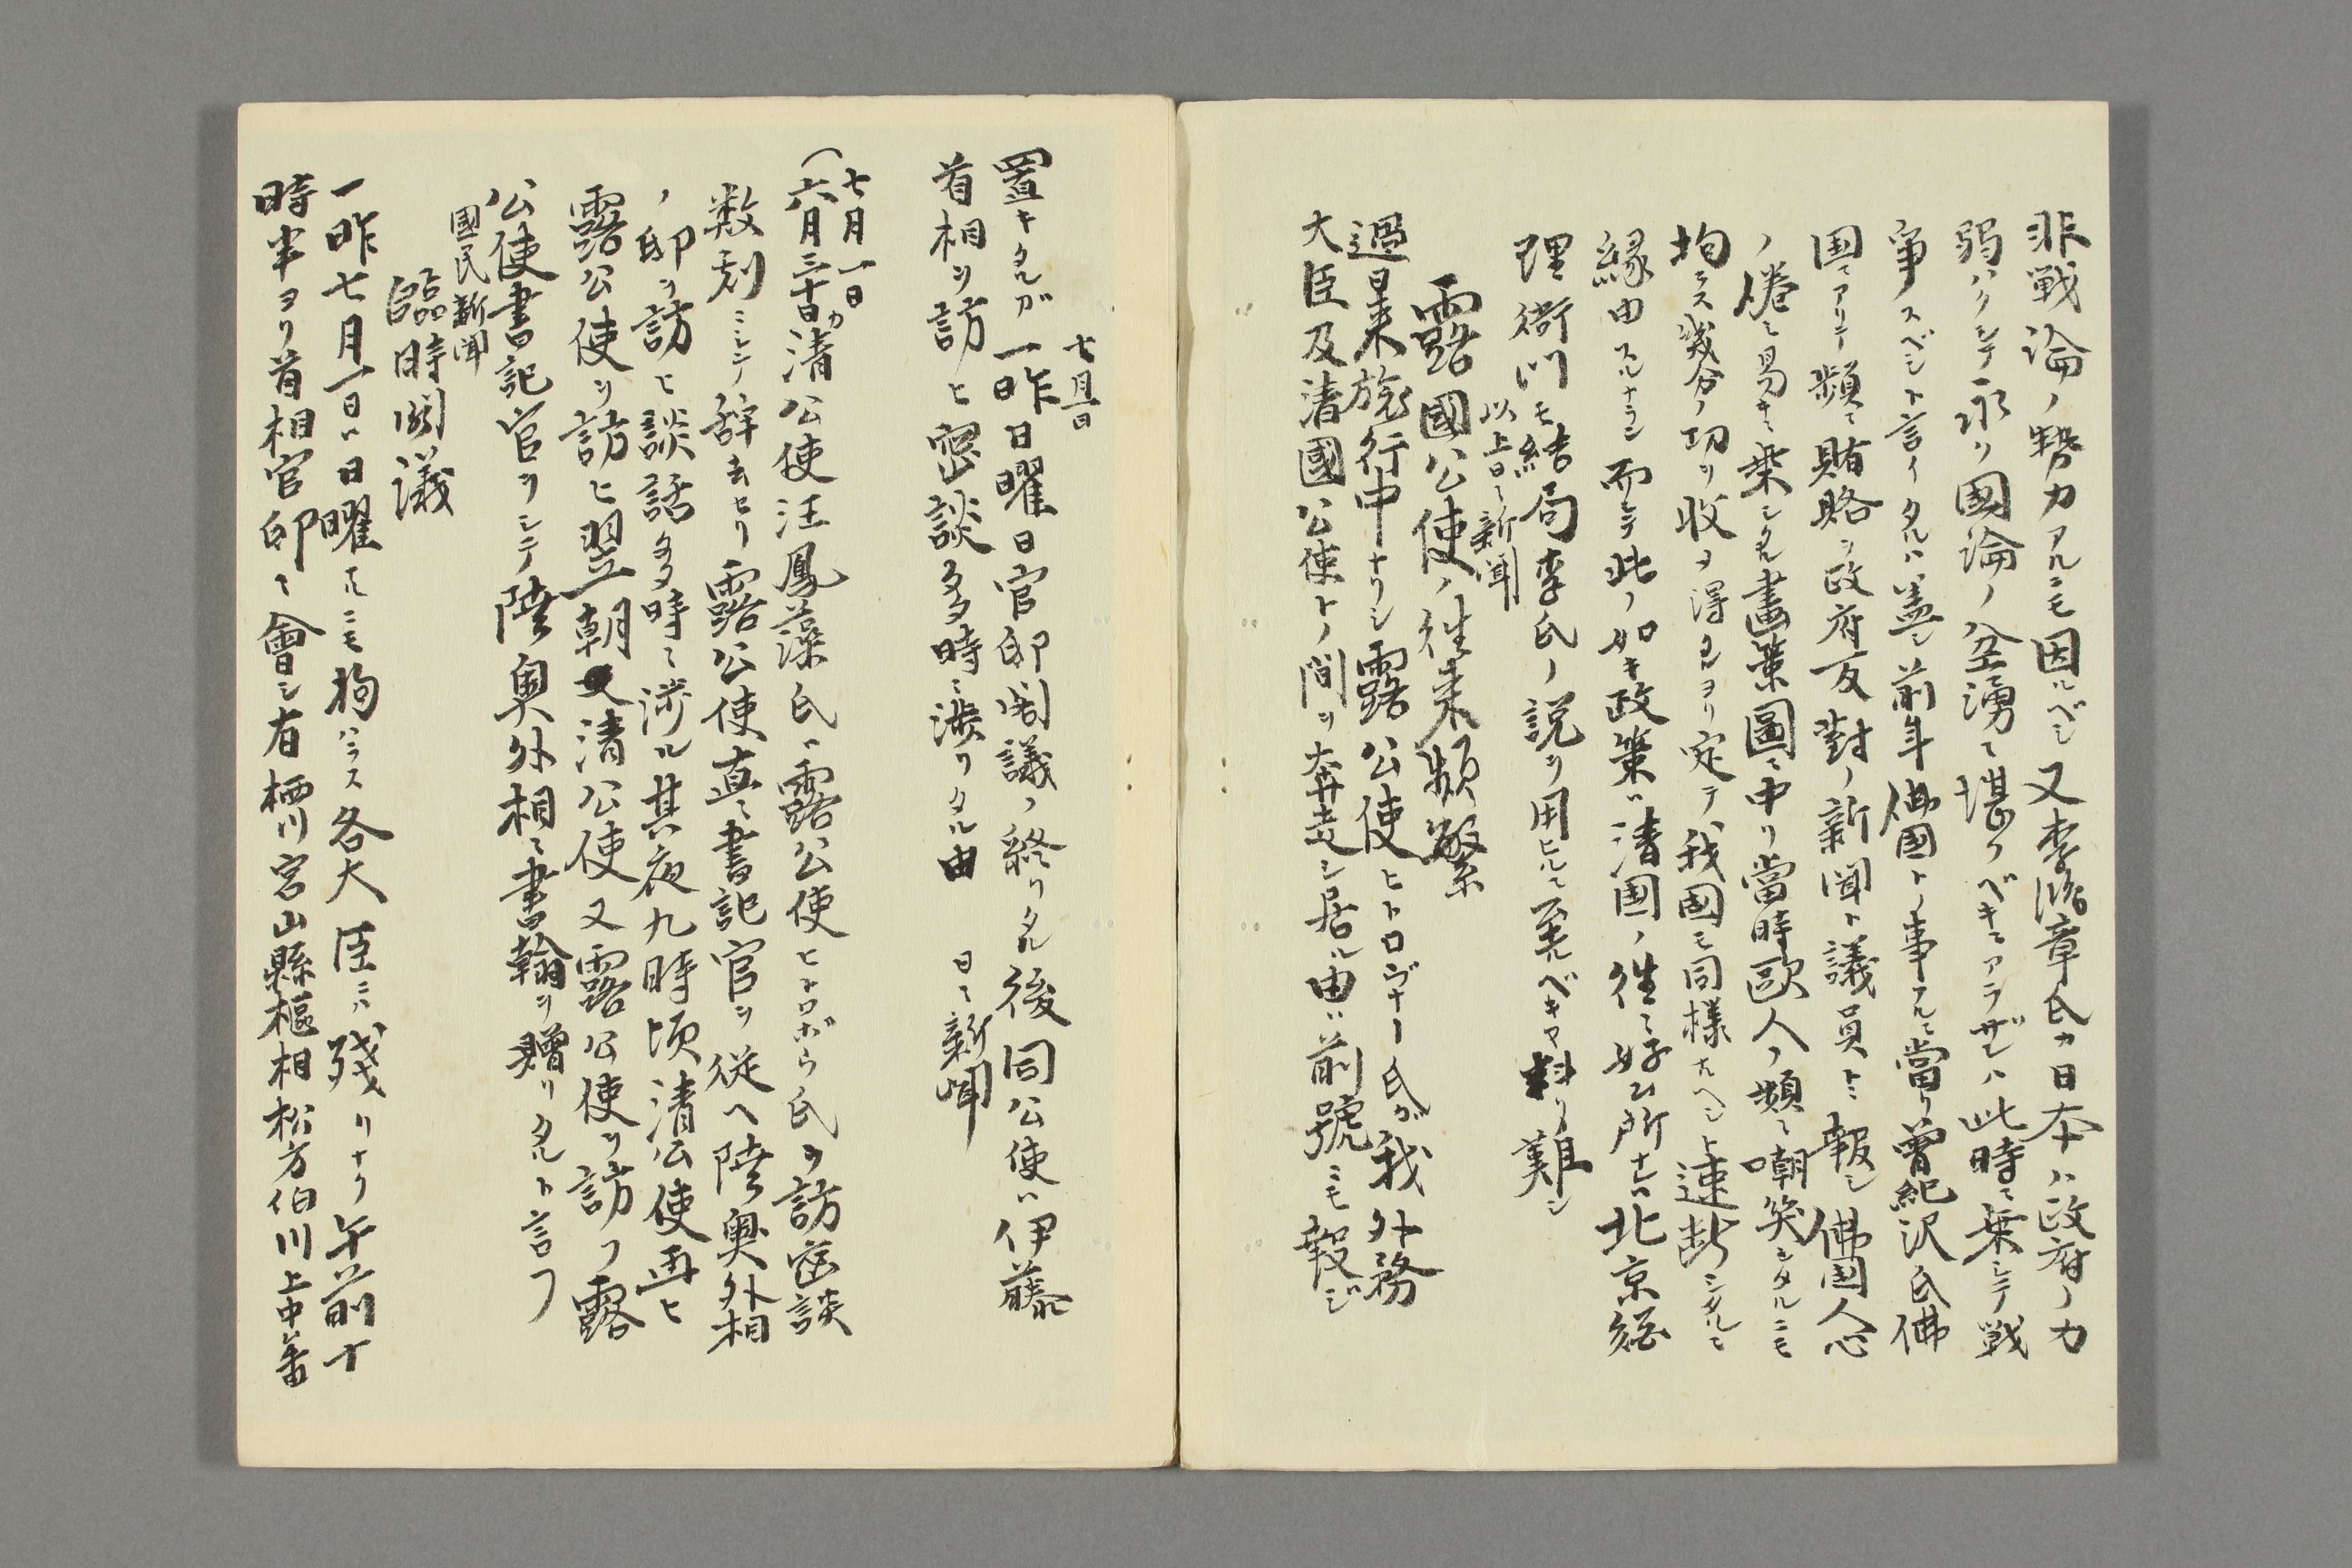 非戦論ノ勢力アルニモ因ルベシ又李鴻章氏カ日本ハ政府ノ力
弱ハクシテ永ク國論ノ湧ニ堪ユベキニアラザレハ此時ニ乗シテ戦
爭スベシト言イタルハ蓋シ前年佛國トノ事アルニ當リ曽紀沢氏佛
国ニアリテ頻ニ賄賂ヲ政府反對ノ新聞ト議員トニ報シ佛国人心
ノ倦ミ易キニ乗シタル畫策圖ニ中リ當時歐人ノ頻ニ嘲笑シタルニモ
拘ラス幾分ノ功ヲ收メ得タルヨリ定テ我国モ同樣ナヘシト速断シタルニ
縁由スルナラン而シテ此ノ如キ政策ハ清国ノ往々好ム所ナレハ北京総
理衙門モ結局李氏ノ説ヲ用ヒルニ至ルベキヤ料リ難シ
以上日々新聞
露國公使ノ徃来頻繁
過日来旅行中ナリシ露公使ヒトロヴナー氏ガ我外務
大臣及清國公使トノ間ヲ奔走シ居ル由ハ前號ニモ報ジ
七月三日
置キタルガ一昨日曜日官邸閣議ノ終リタル後同公使ハ伊藤
首相ヲ訪ヒ密談多時ニ渉リタル由 日々新聞
七月一日
(六月三十日カ清公使汪鳳藻氏ハ露公使ヒトロボウ氏ヲ訪密談
数刻ニシテ辞去セリ露公使直ニ書記官ヲ従ヘ陸奥外相
ノ邸ヲ訪ヒ談話多時ニ渉ル其夜九時頃清公使再ヒ
露公使ヲ訪ヒ翌朝又清公使又露公使ヲ訪フ露
公使書記官ヲシテ陸奥外相ニ書翰ヲ贈リタルト言フ
國民新聞
臨時閣議
一昨七月一日ハ日曜ナルニモ拘ハラス各大臣ニハ残リナク午前十
時半ヨリ首相官邸ニ會シ有栖川宮山縣樞相松方伯川上中